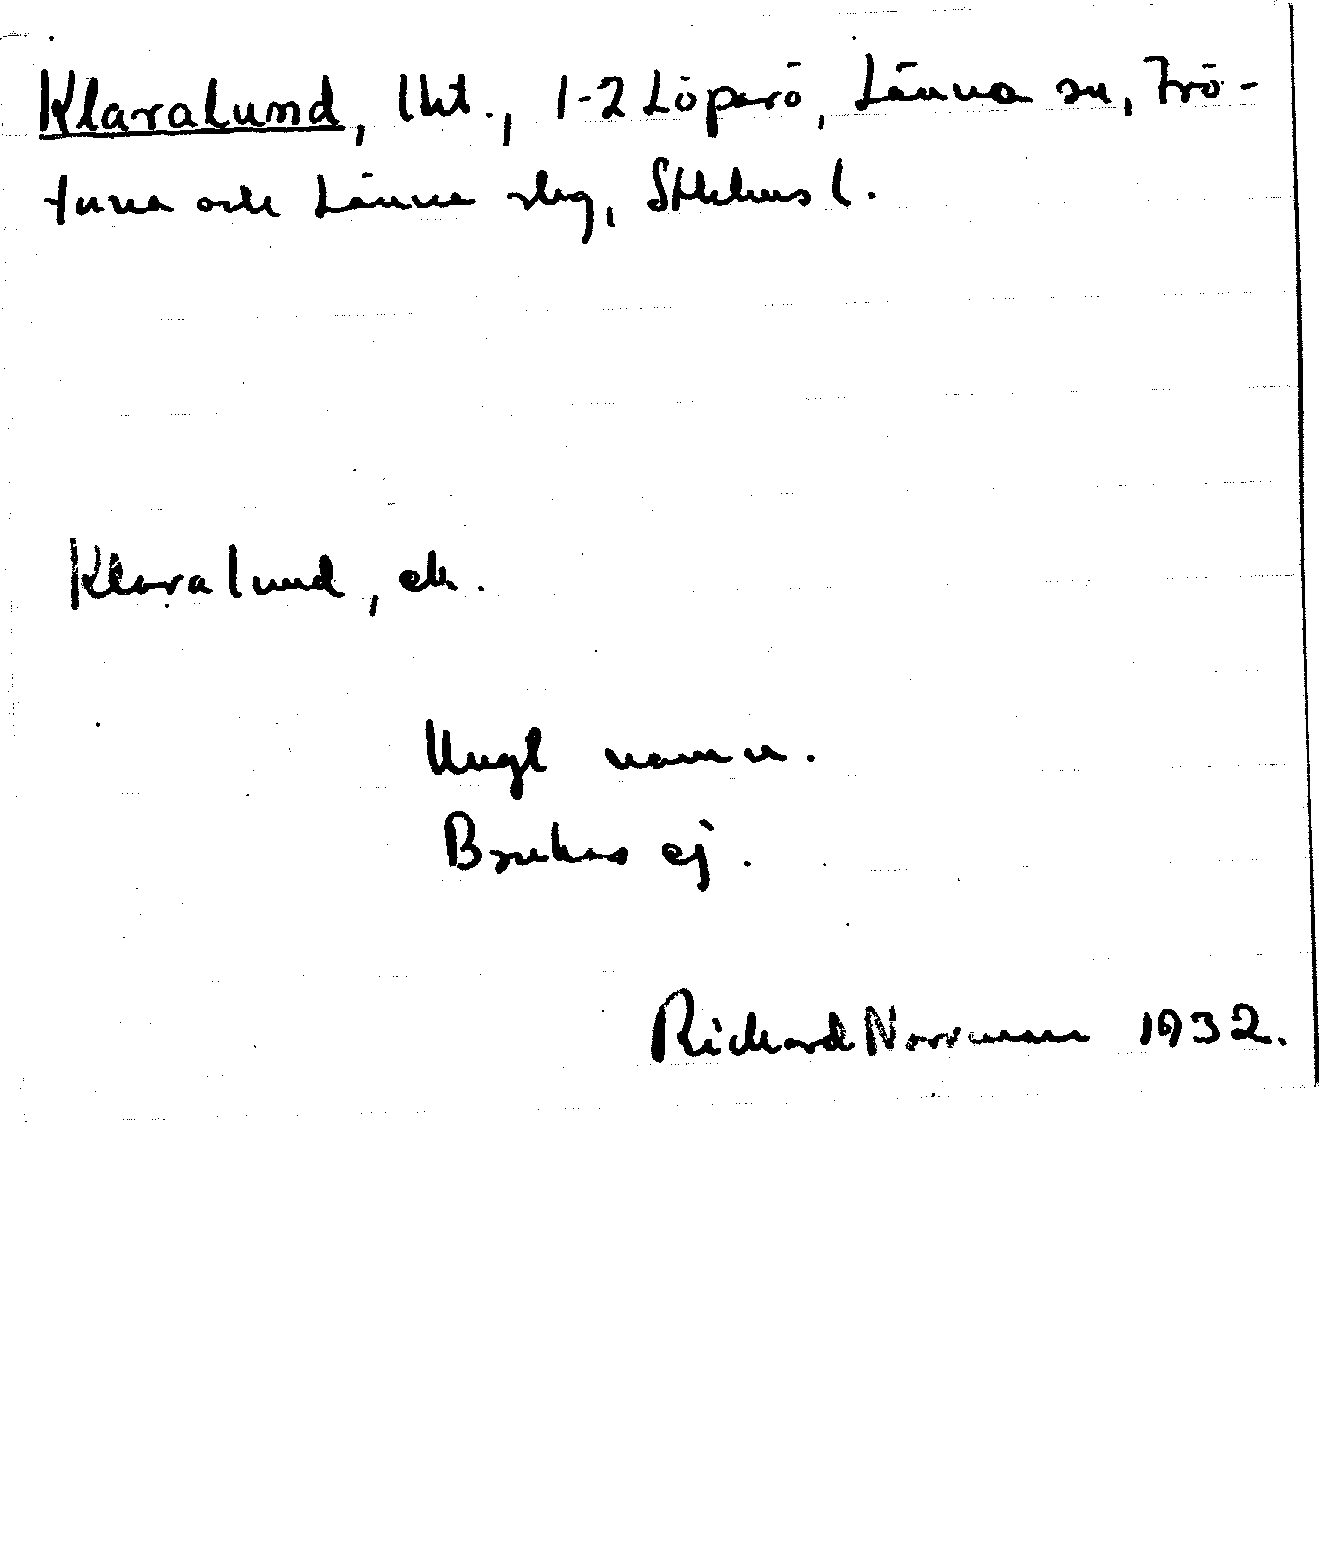 Klaralund, lht., 1-2 Löparö, Länna sn, Frö-
tuna och Länna slg, Sthlms l.
Klaralund, ek.
Ungt namn.
Brukas ej.
Richard Norrman 1932.